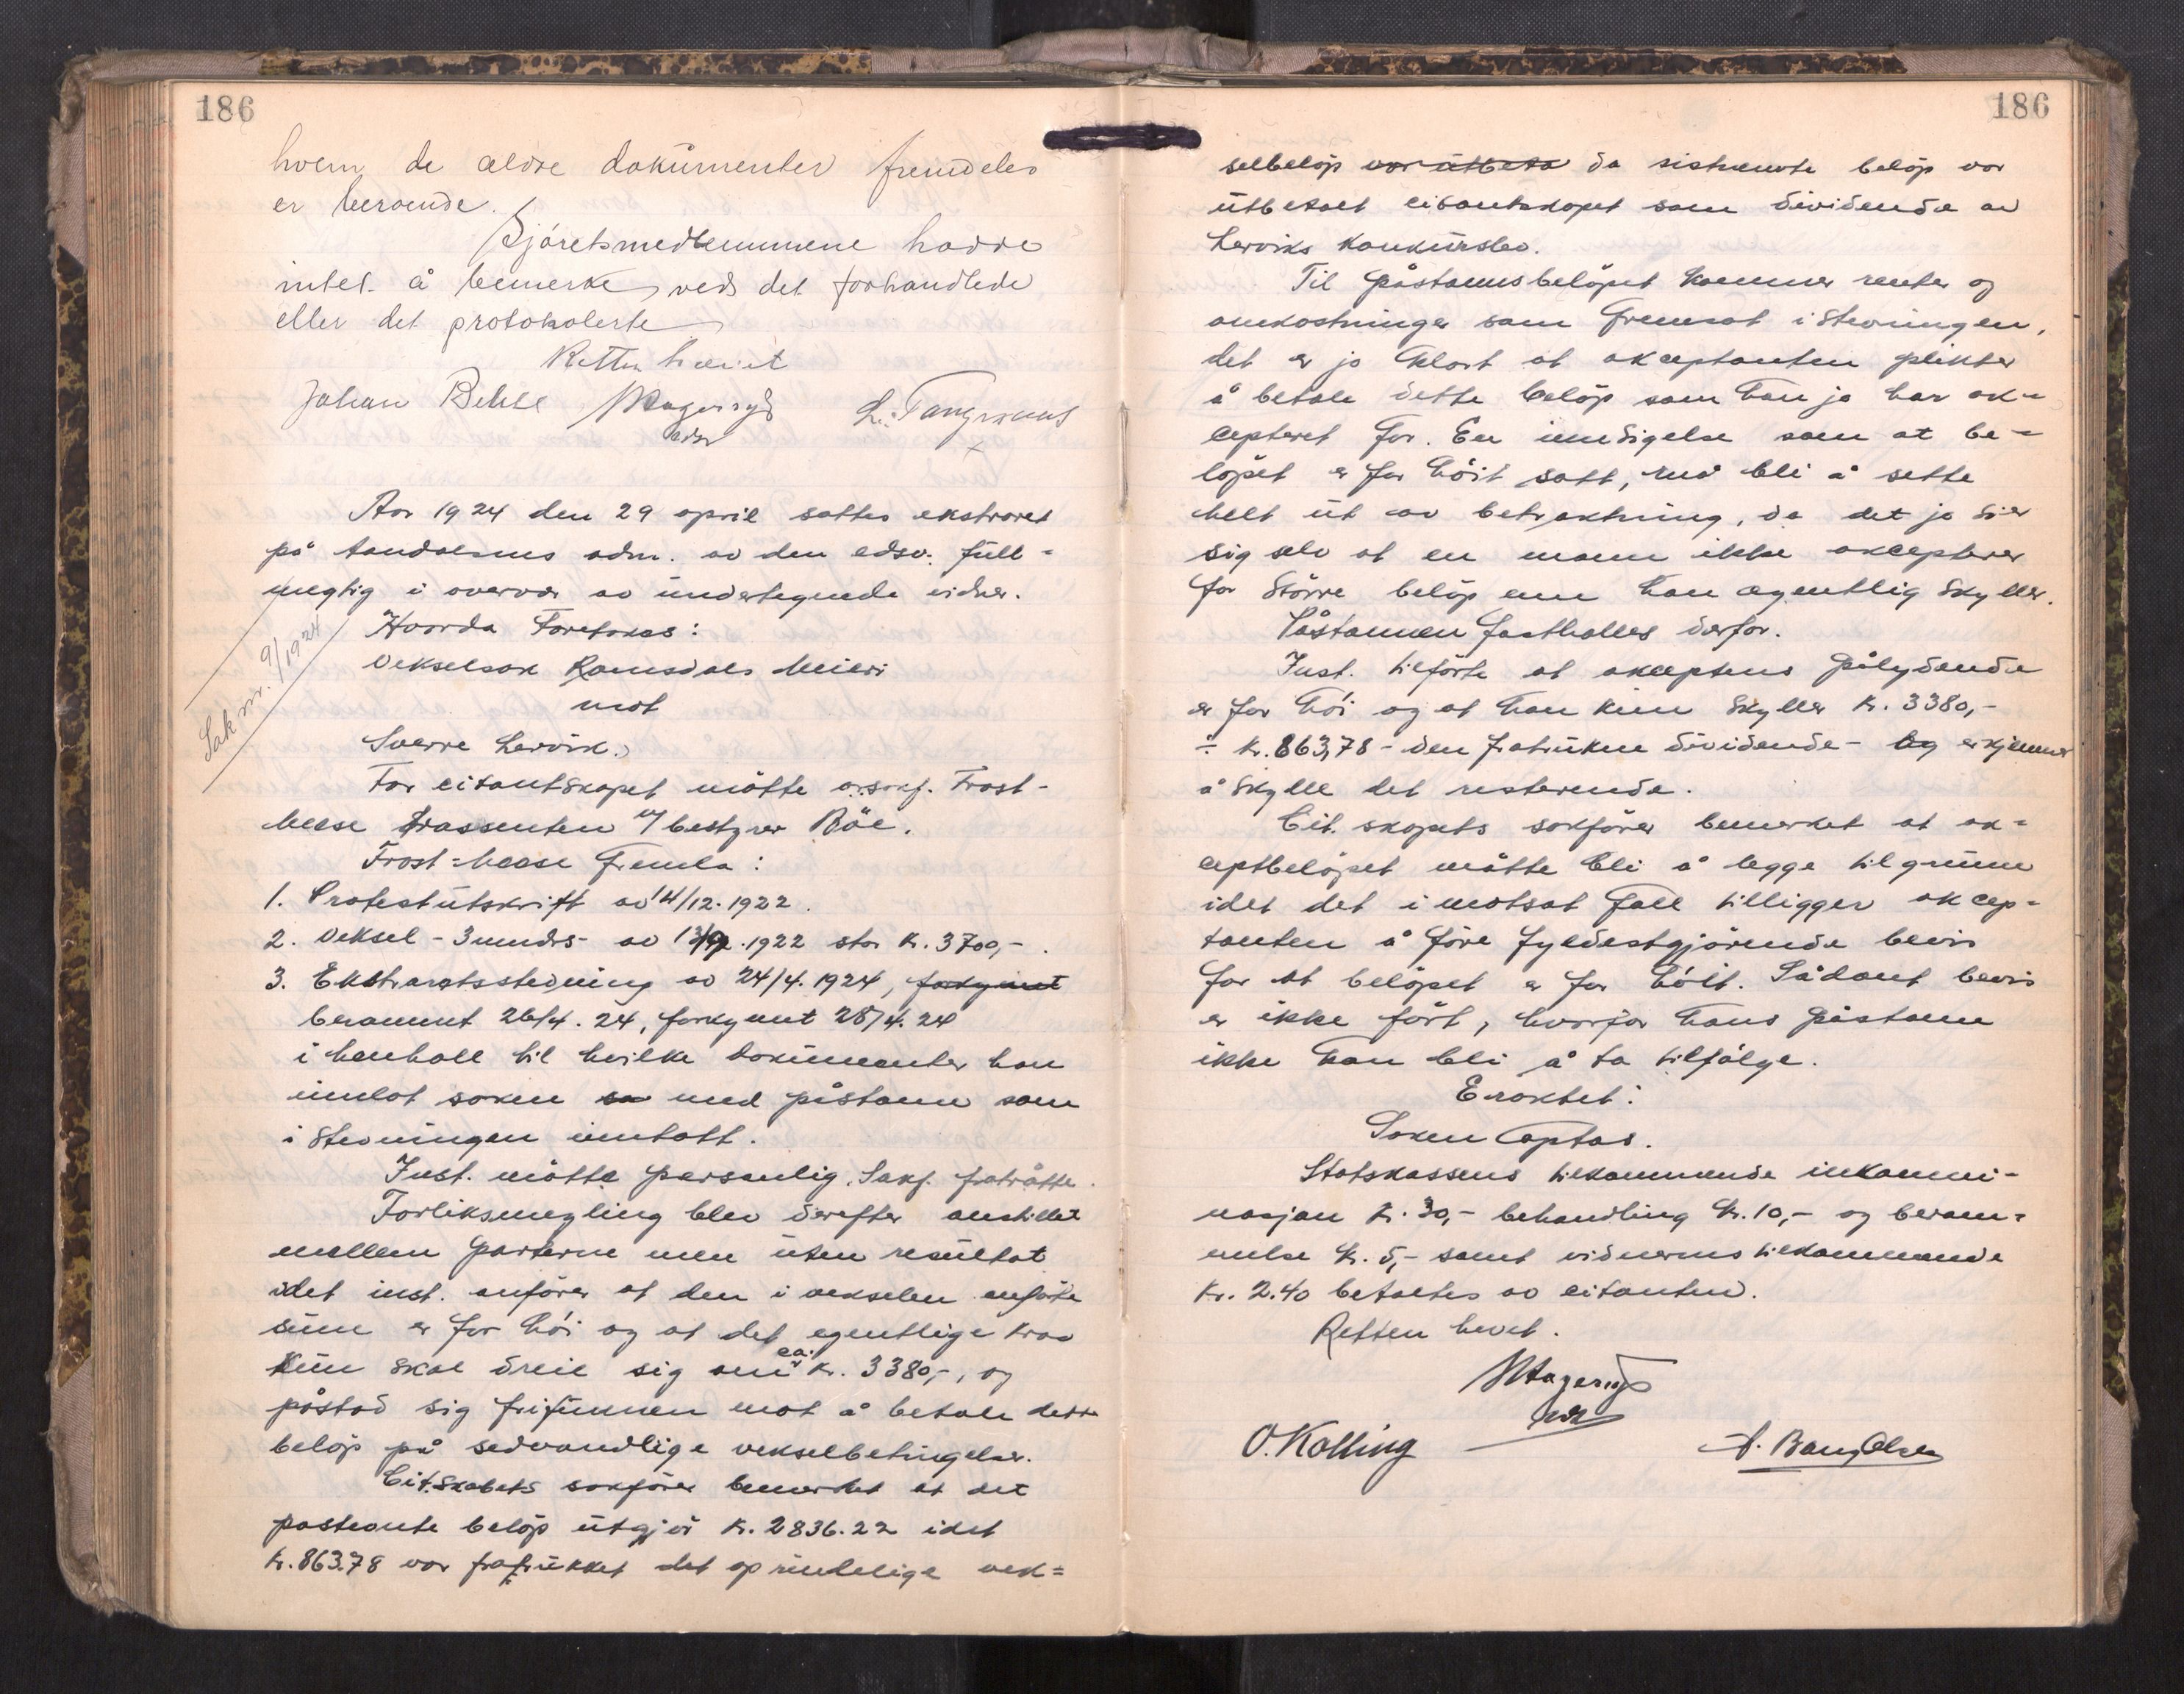 186
hvem de ældre dokumenter fremdeles
er beroende.
Sjöretsmedlemmene hadde
intet å bemerke ved det forhandlede
eller det protokolerte
Retten hævet
Johan Behle Magerøy L. Tangeraas
edsv
Aar 1924 den 29 april sattes ekstraret
på Søndalens adm. av den edsv. full-
megtig i overvær av undertegnede vidner.
Hvorda Foretokes:
Sak nr. 9/1924
Vekselsak Romsdals Meieri
mot
Sverre Lervik.
For citantskapet møtte o.r.sakf. Frost-
Mease Trassenten v/ bestyrer Böe.
Frost-Mease Fremla:
1. Protestutskrift av 14/12.1922.
2. Veksel - 3 mndrs - av 13/9.1922 stor Kr. 3700,-.
3. Ekstraretsstevning av 24/4. 1924, forkynnt
berammet 26/4. 24, forkynnt 28/4. 24
i henhold til hvilke dokumenter han
innlot saken sa med påstann som
i stevningen inntatt.
Inst. møtte personlig. Sakf. fratrådte.
Forliksmegling blev derefter anstillet
mellem parterne men uten resultat
idet inst. anförer at den i vekselen anförte
sum er for höi og at det egentlige krav
kun skal dreie sig om ca. Kr. 3380,-, og
påstod sig frifunnen mot å betale dette
belöp på sedvandlige vekselbetingelser.
Cit.skabets sakförer bemerket at det
påstevnte belöp utgjör Kr. 2836.22 idet
Kr. 863.78 var fratrukket det oprindelige vek=
186
selbelöp var utbeta da sistnevnte belöp var
utbetalt citantskapet som dividende av
Lerviks konkursbo.
Til påstannsbelöpet kommer renter og
omkostninger som fremsat i stevningen,
det er jo klart at akceptanten plikter
å betale dette belöp som han jo har ak-
ceptert for. En innsigelse som at be-
löpet er for höit satt, må bli å sette
helt ut av betraktning, da det jo sier
sig selv at en mann ikke akcepterer
for större belöp enn han egentlig skyller.
Påstannen fastholles derfor.
Inst. tilförte at akceptens pålydende
er for höi og at han kun skyller Kr. 3380,-
÷ Kr. 863,78 - den fratrukne dividende - og erkjenner
å skylle det resterende.
Cit. skapets sakförer bemerket at ak=
ceptbelöpet måtte bli å legge til grunn
idet det i motsat fall tilligger akcep=
tanten å före fyldestgjörende bevis
for at belöpet er for höit. Sådant bevis
er ikke fört, hvorfor hans påstann
ikke kan bli å ta tilfölge.
Eraktet:
Saken Optas.
Statskassens tilkommende inkammi-
nasjon Kr. 30,- behandling Kr. 10,- og beram=
melse Kr. 5,- samt vidnernes tilkommende
Kr. 2.40 betaltes av citanten.
Retten hevet.
Magerøy
edsv
O. Kolling A. Bang Olsen